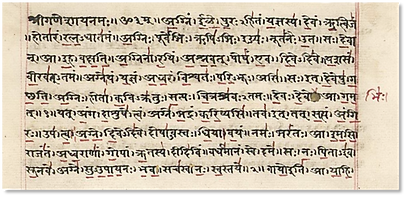 श्रीगणेशायनमः॥ॐ३म्॥अग्निं।ईळे।पुरःऽहितं।यज्ञस्य।देवं।ऋत्विजं
।होतारं।रत्नऽधातमं।अग्निः।पूर्वेभिः।ऋषिऽभिः।ईड्यः।नूतनैः।उत।सः।देवा
न्।आ।इह।वक्षति।अग्निना।रयिं।अश्नवत्।पोषं।एव।दिवेऽदिवे।यशसं
वीरवत्ऽतमं।अग्ने।यं।यज्ञं।अध्वरं।विश्वतः।परिऽभूः।असि।सः।इत्।देवेषु।ग
च्छति।अग्निः।होता।कविऽक्रतुः।सत्यः।चित्रश्रवःऽतमः।देवः।देवे।आ।गम
भिः
त्॥१॥यत्।अंग।दाशुषे।त्वं।अग्ने।भद्रं।करिष्यसि।तव।इत्।तत्।सत्यं।अंगि
रः।उप।त्वा।अग्ने।दिवेऽदिवे।दोषाऽवस्तः।धिया।वयं।नमः।भरंतः।आ।इमसि
राजंतं।अध्वराणां।गोपां।ऋतस्य।दीदिविं।वर्धमानं।स्वे।दमे।सः।नः।पिताऽइव
सूनवे।अग्ने।सुऽउपायनः।भव।सचस्व।नः।स्वस्तये॥२॥वायोइति।आ।याहि